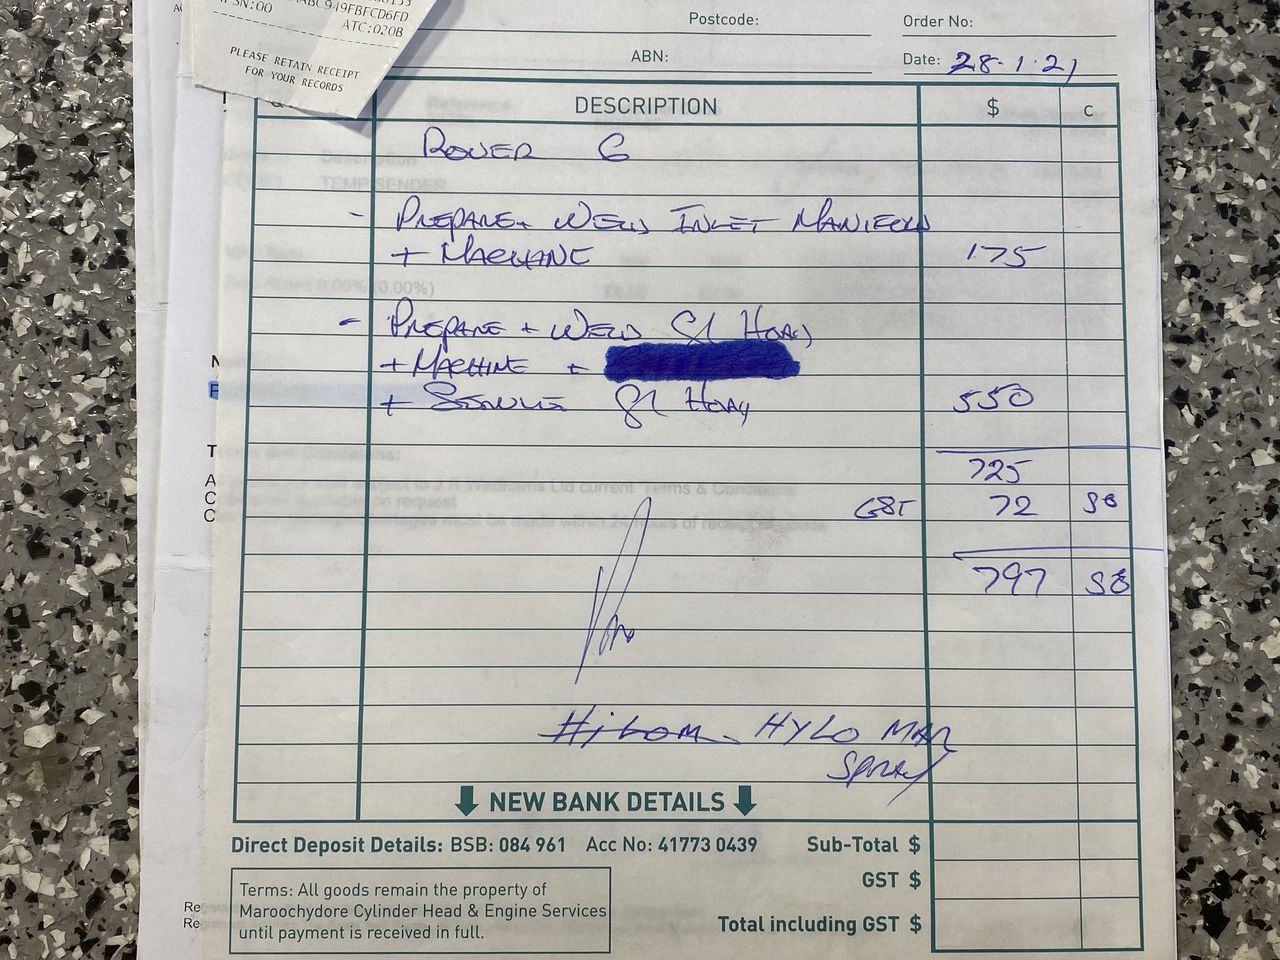 ABC949FBFCD6FD
PSN:00
ATC:020B
PLEASE RETAIN RECEIPT
FOR YOUR RECORDS
Postcode:
Order No:
ABN:
Date: 28.1.21
DESCRIPTION $ c
ROVER 6
- PREPARE + WELD INLET MANIFOLD
+ MACHINE 175
- PREPARE + WELD CYL HEAD
+ MACHINE +
+ SERVICE CYL HEAD 550
725
GST 72 50
797 50
HYLO MAR
SPRAY
NEW BANK DETAILS
Direct Deposit Details: BSB: 084 961 Acc No: 41773 0439
Sub-Total $
GST $
Total including GST $
Terms: All goods remain the property of
Maroochydore Cylinder Head & Engine Services
until payment is received in full.
TEMP SENDER
(0.00%)